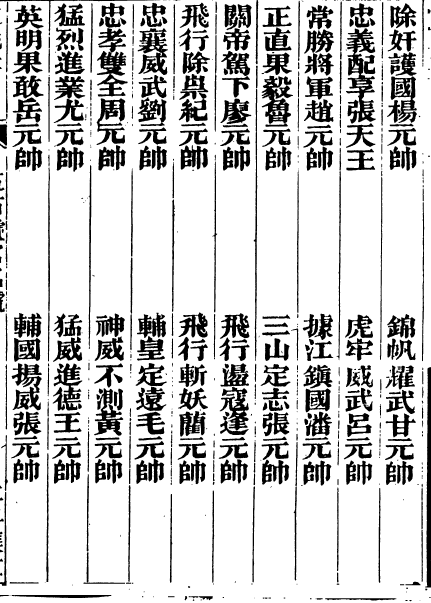 除奸護國楊元帥
錦帆耀武甘元帥
忠義配享張天王
虎牢威武呂元帥
常勝將軍趙元帥
據江鎮國潘元帥
正直果毅魯元帥
三山定志張元帥
關帝駕下廖元帥
飛行盪寇逢元帥
飛行除祟紀元帥
飛行斬妖藺元帥
忠襄威武劉元帥
輔皇定遠毛元帥
忠孝雙全周元帥
神威不測黃元帥
猛烈進業尤元帥
猛威進德王元帥
英明果敢岳元帥
輔國揚威張元帥